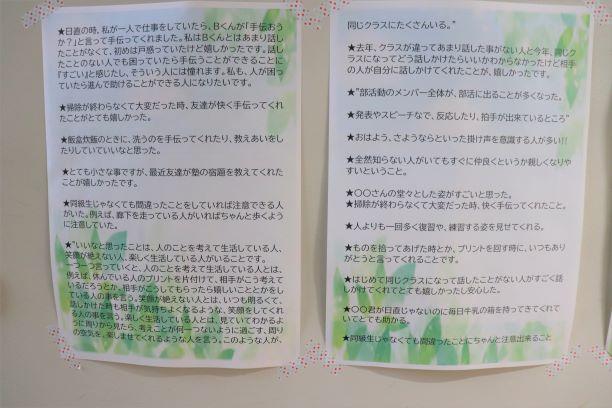 ★日直の時、私が一人で仕事をしていたら、Bくんが「手伝おう
か？」と言って手伝ってくれました。私はBくんとはあまり話し
たことがなくて、初めは戸惑っていたけど嬉しかったです。話し
たことのない人でも困っていたら手伝うことができることに
『すごい』と感じたし、そういう人には憧れます。私も、人が困っ
ていたら進んで助けることができる人になりたいです。
★掃除が終わらなくて大変だった時、友達が快く手伝ってくれ
たことがとても嬉しかった。
★飯盒炊飯のときに、洗うのを手伝ってくれたり、教えあいをし
たりしていていいなと思った。
★とても小さな事ですが、最近友達が塾の宿題を教えてくれた
ことが嬉しかったです。
★同級生じゃなくても間違ったことをしていれば注意できる人
がいた。例えば、廊下を走っている人がいればちゃんと歩くよう
に注意していた。
★"いいなと思ったことは、人のことを考えて生活している人、
笑顔が絶えない人、楽しく生活している人がいることです。
一つ一つ言っていくと、人のことを考えて生活している人とは、
例えば、休んでいる人のプリントを片付けて、相手がこう考えて
いるだろうとか、相手がこうしてもらったら嬉しいこととかをし
ている人の事を言う。笑顔が絶えない人とは、いつも明るくて、
話しかけた時も相手が気持ちよくなるような、笑顔をしてくれ
る人の事を言う。楽しく生活している人とは、見ていてわかるよ
うに周りから見たら、考えことが何一つないように過ごす、周り
の空気を、楽しませてくれるような人を言う。このような人が、
同じクラスにたくさんいる。"
★去年、クラスが違ってあまり話した事がない人と今年、同じク
ラスになってどう話しかけたらいいかわからなかったけど相手
の人が自分に話しかけてくれたことが、嬉しかったです。
★"部活動のメンバー全体が、部活に出ることが多くなった。
★発表やスピーチなで、反応したり、拍手が出来ているところ"
★おはよう、さようならといった掛け声を意識する人が多い!!
★全然知らない人がいてもすぐに仲良くというか親しくなりや
すいということ。
★〇〇さんの堂々とした姿がすごいと思った。
★掃除が終わらなくて大変だった時、快く手伝ってくれたこと。
★人よりも一回多く復習や、練習する姿を見せてくれる。
★ものを拾ってあげた時とか、プリントを回す時に、いつもあり
がとうと言ってくれることです。
★はじめて同じクラスになって話したことがない人がすごく話
しかけてくれてとても嬉しかったし安心した。
★〇〇君が日直じゃないのに毎日牛乳の箱を持ってきてくれて
いてとても助かる。
★同級生じゃなくても間違ったことにちゃんと注意出来ること